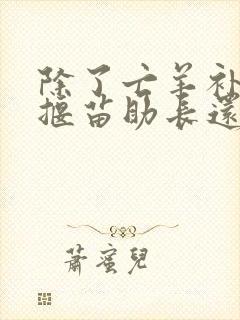 除了亡羊补
揠苗助长还
萧蜜儿